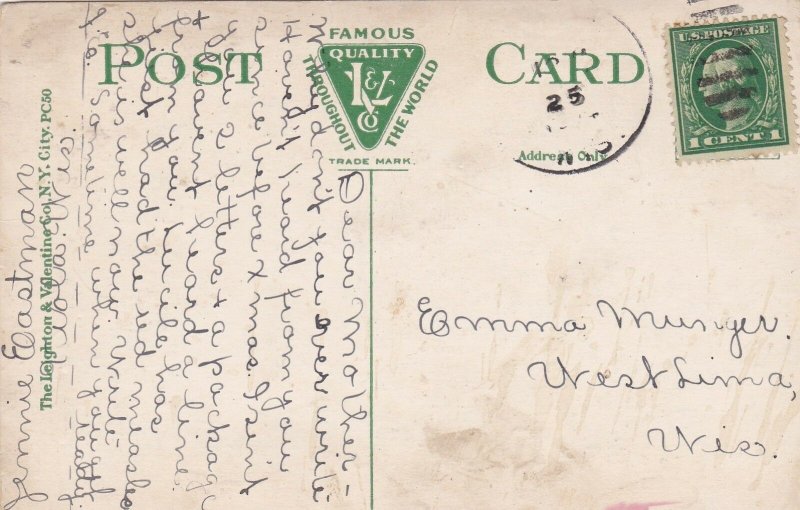 POST CARD
FAMOUS
QUALITY
THROUGHOUT THE WORLD
L&V Co
TRADE MARK.
Address Only
25
U.S. POSTAGE
1 CENT 1
The Leighton & Valentine Co., N.Y. City. PC50
Dear Mother-
Why don't you ever write
Haven't heard from you
once before Xmas. I sent
you 2 letters & a package
& havent heard a line
from you. Lucile has
just had the red measles
all is well now. Write
sometime when you
Jennie Eastman
Wis.
Emma Munger.
West Lima,
Wis.